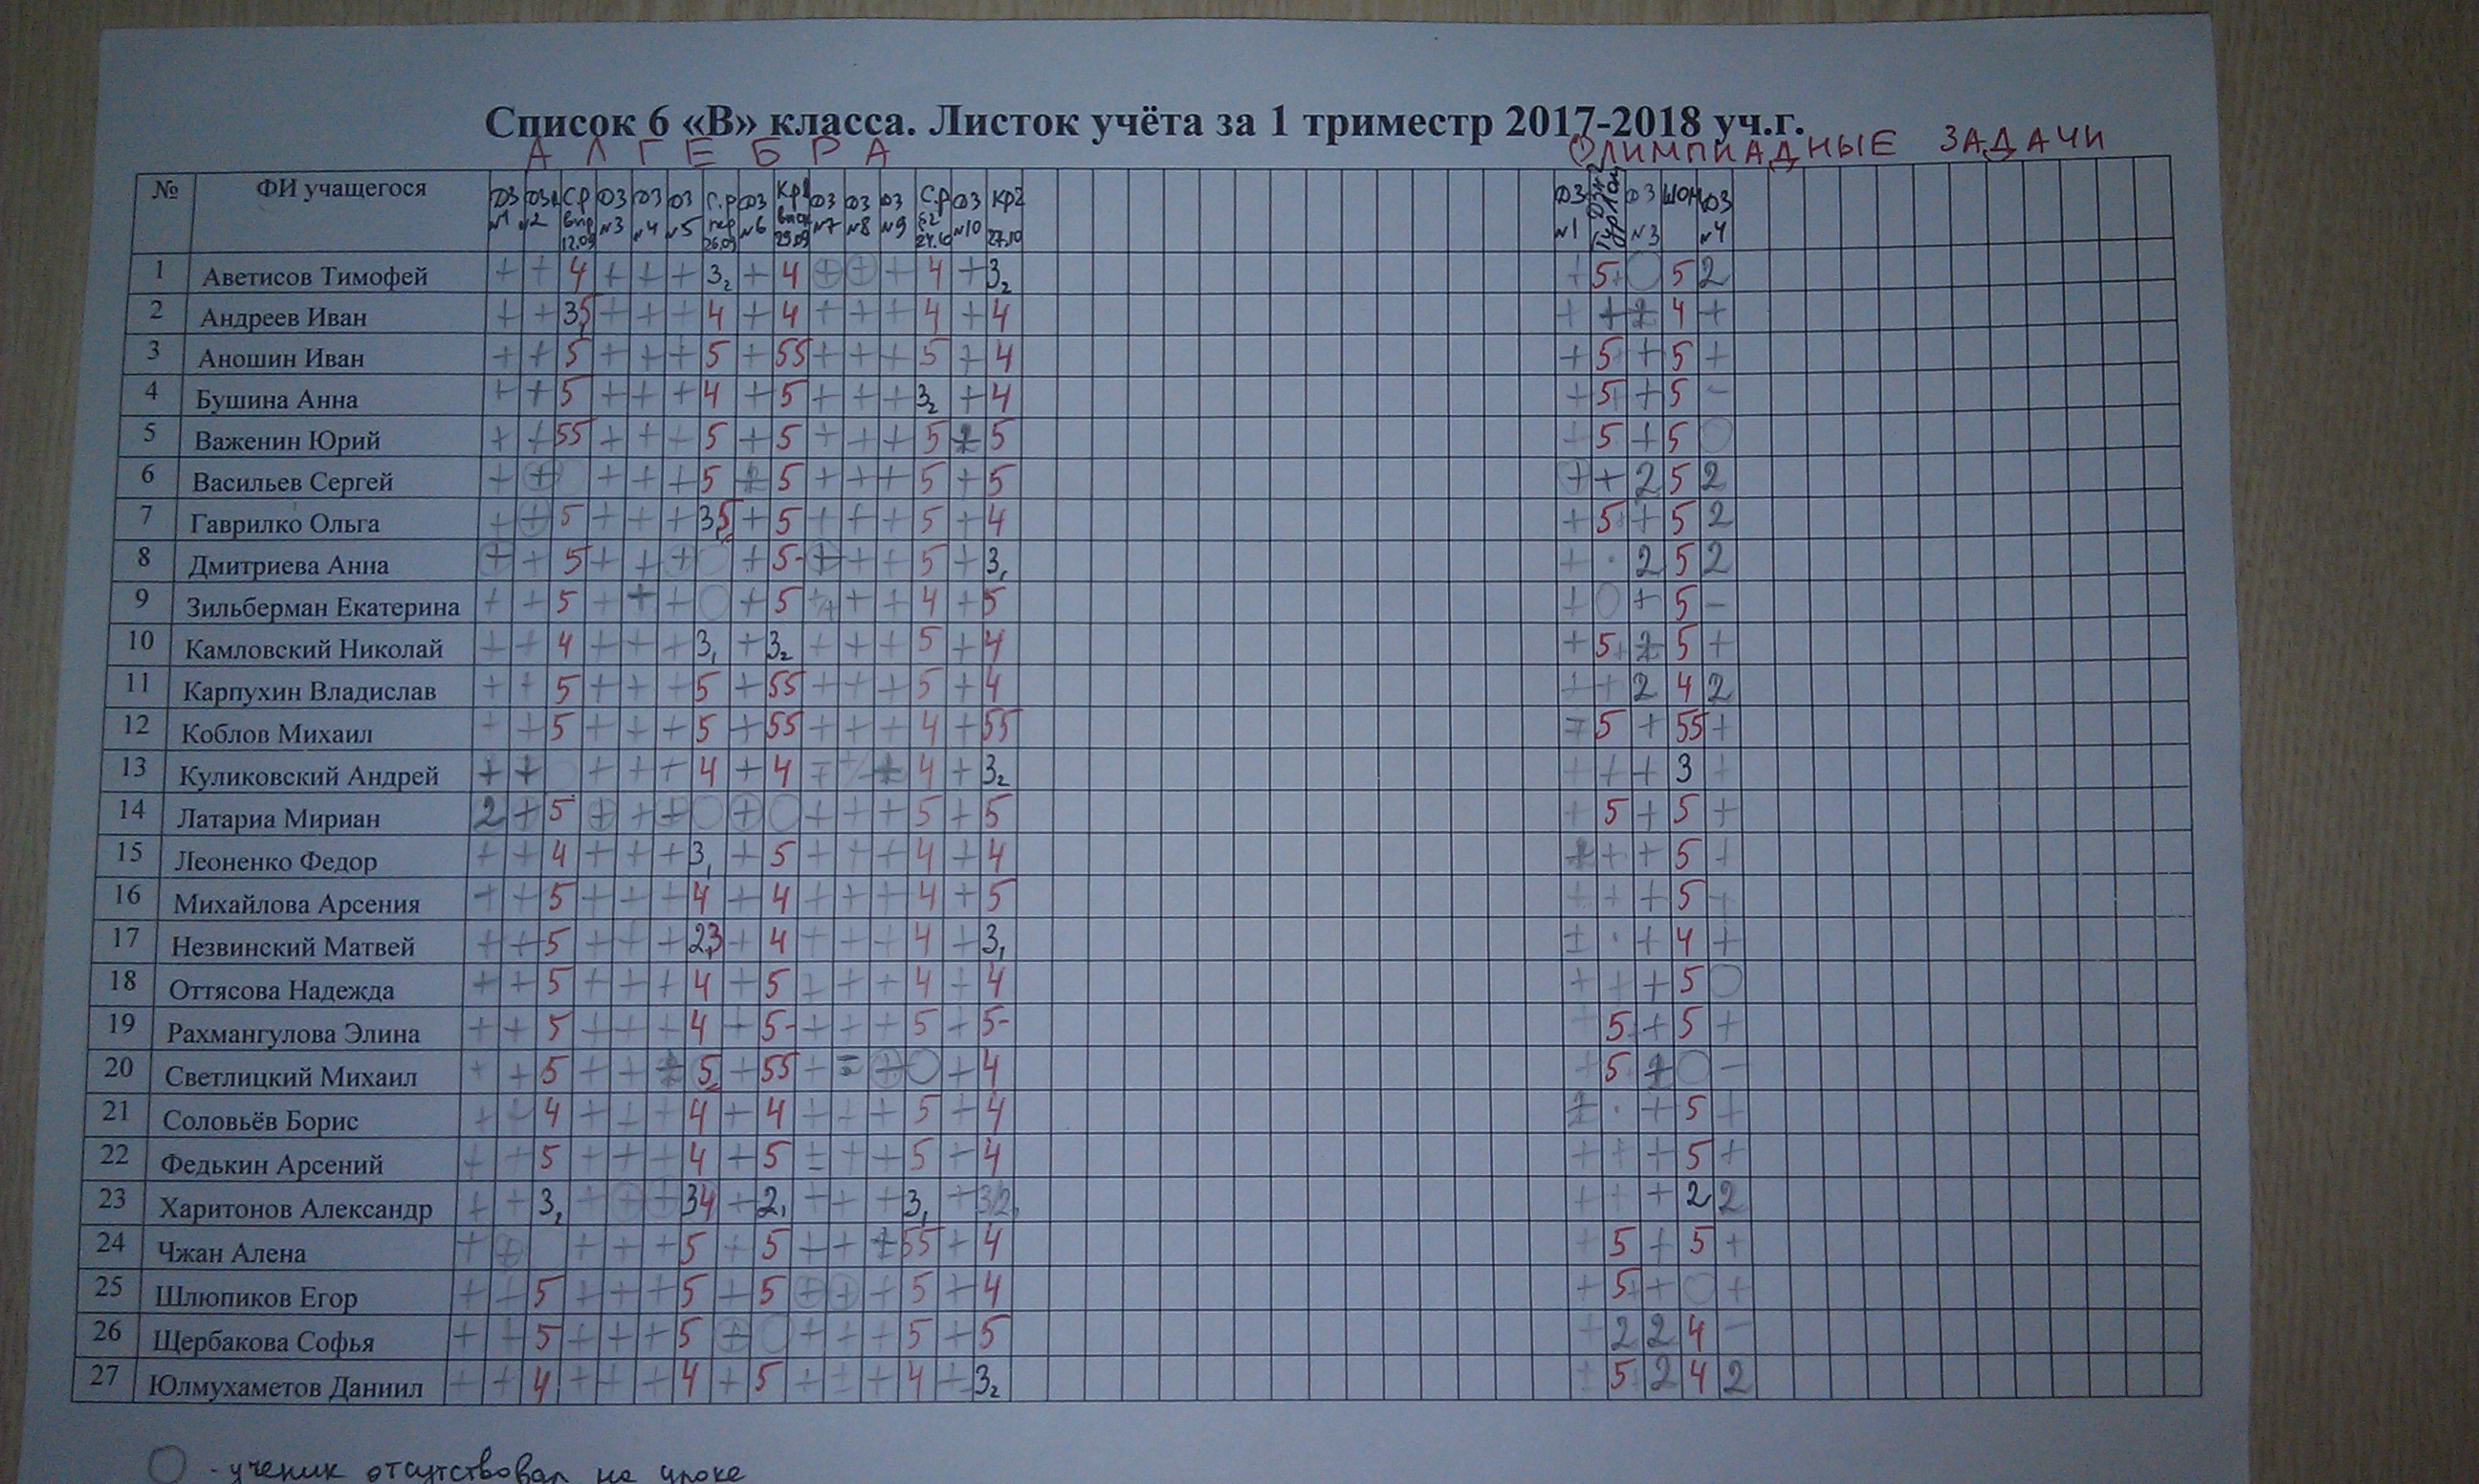 Список 6 «В» класса. Листок учёта за 1 триместр 2017-2018 уч.г.
АЛГЕБРА ОЛИМПИАДНЫЕ ЗАДАЧИ
№ ФИ учащегося ДЗ №1 ДЗ №2 С.Р 12.09 ДЗ №3 ДЗ №4 ДЗ №5 С.Р 26.09 ДЗ №6 Кр1 29.09 ДЗ №7 ДЗ №8 ДЗ №9 С.Р 24.10 ДЗ №10 Кр2 27.10 ДЗ №1 ДЗ №3 ДЗ №4
1 Аветисов Тимофей + + 4 + + + 3₂ + 4 + + + 4 + 3₂ + 5+ 5 2
2 Андреев Иван + + 35 + + + 4 + 4 + + + 4 + 4 + + 4 +
3 Аношин Иван + + 5 + + + 5 + 55 + + + 5 + 4 + 5+ + 5 +
4 Бушина Анна + + 5 + + + 4 + 5 + + + 3₂ + 4 + 5+ + 5 -
5 Важенин Юрий + + 55 + + + 5 + 5 + + + 5 5 + 5 + 5
6 Васильев Сергей + + + + + 5 5 + + + 5 + 5 + + 2 5 2
7 Гаврилко Ольга + + 5 + + + 35 + 5 + + + 5 + 4 + 5+ + 5 2
8 Дмитриева Анна + + 5 + + + + 5- + + + 5 + 3, + · 2 5 2
9 Зильберман Екатерина + + 5 + + + + 5 + + + 4 + 5 + + 5 -
10 Камловский Николай + + 4 + + + 3, + 3₂ + + + 5 + 4 + 5+ 5 +
11 Карпухин Владислав + + 5 + + + 5 + 55 + + + 5 + 4 + + 2 4 2
12 Коблов Михаил + + 5 + + + 5 + 55 + + + 4 + 55 5 + 55 +
13 Куликовский Андрей + + + + + 4 + 4 4 + 3₂ + + + 3 +
14 Латариа Мириан 2 + 5 + + + + + + + 5 + 5 + 5 + 5 +
15 Леоненко Федор + + 4 + + + 3, + 5 + + + 4 + 4 + + 5 +
16 Михайлова Арсения + + 5 + + + 4 + 4 + + + 4 + 5 + + + 5 +
17 Незвинский Матвей + + 5 + + + 23 + 4 + + + 4 + 3, ± · + 4 +
18 Оттясова Надежда + + 5 + + + 4 + 5 + + + 4 + 4 + + + 5
19 Рахмангулова Элина + + 5 + + + 4 + 5- + + + 5 + 5- + 5 + 5 +
20 Светлицкий Михаил + + 5 + + 5 + 55 + + + 4 + 5 -
21 Соловьёв Борис + + 4 + + + 4 + 4 + + + 5 + 4 · + 5 +
22 Федькин Арсений + + 5 + + + 4 + 5 ± + + 5 + 4 + + + 5 +
23 Харитонов Александр + + 3, + + + 34 + 2, + + + 3, + + + + 2 2
24 Чжан Алена + + + + + 5 + 5 + + 55 + 4 + 5 + 5 +
25 Шлюпиков Егор + + 5 + + + 5 + 5 + + + 5 + 4 + 5+ + +
26 Щербакова Софья + + 5 + + + 5 + + + + 5 + 5 + 2 2 4 -
27 Юлмухаметов Даниил + + 4 + + + 4 + 5 + ± + 4 + 3₂ ± 5 2 4 2
- ученик отсутствовал на уроке